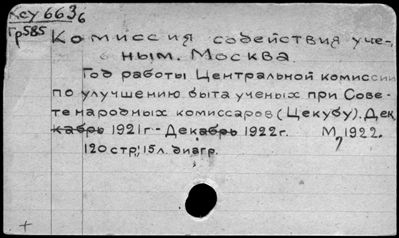 Ксу 663б
Гр585
Комиссия содействия уче-
ным. Москва.
Год работы Центральной комиссии
по улучшению быта ученых при Сове-
те народных комиссаров (Цекубу). Дек
кабрь 1921г - Декабрь 1922г. М, 1922.
120 стр; 15 л. диагр.